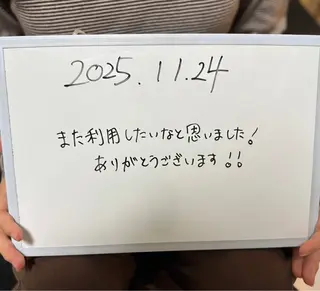 2025.11.24
また利用したいなと思いました!
ありがとうございます!!